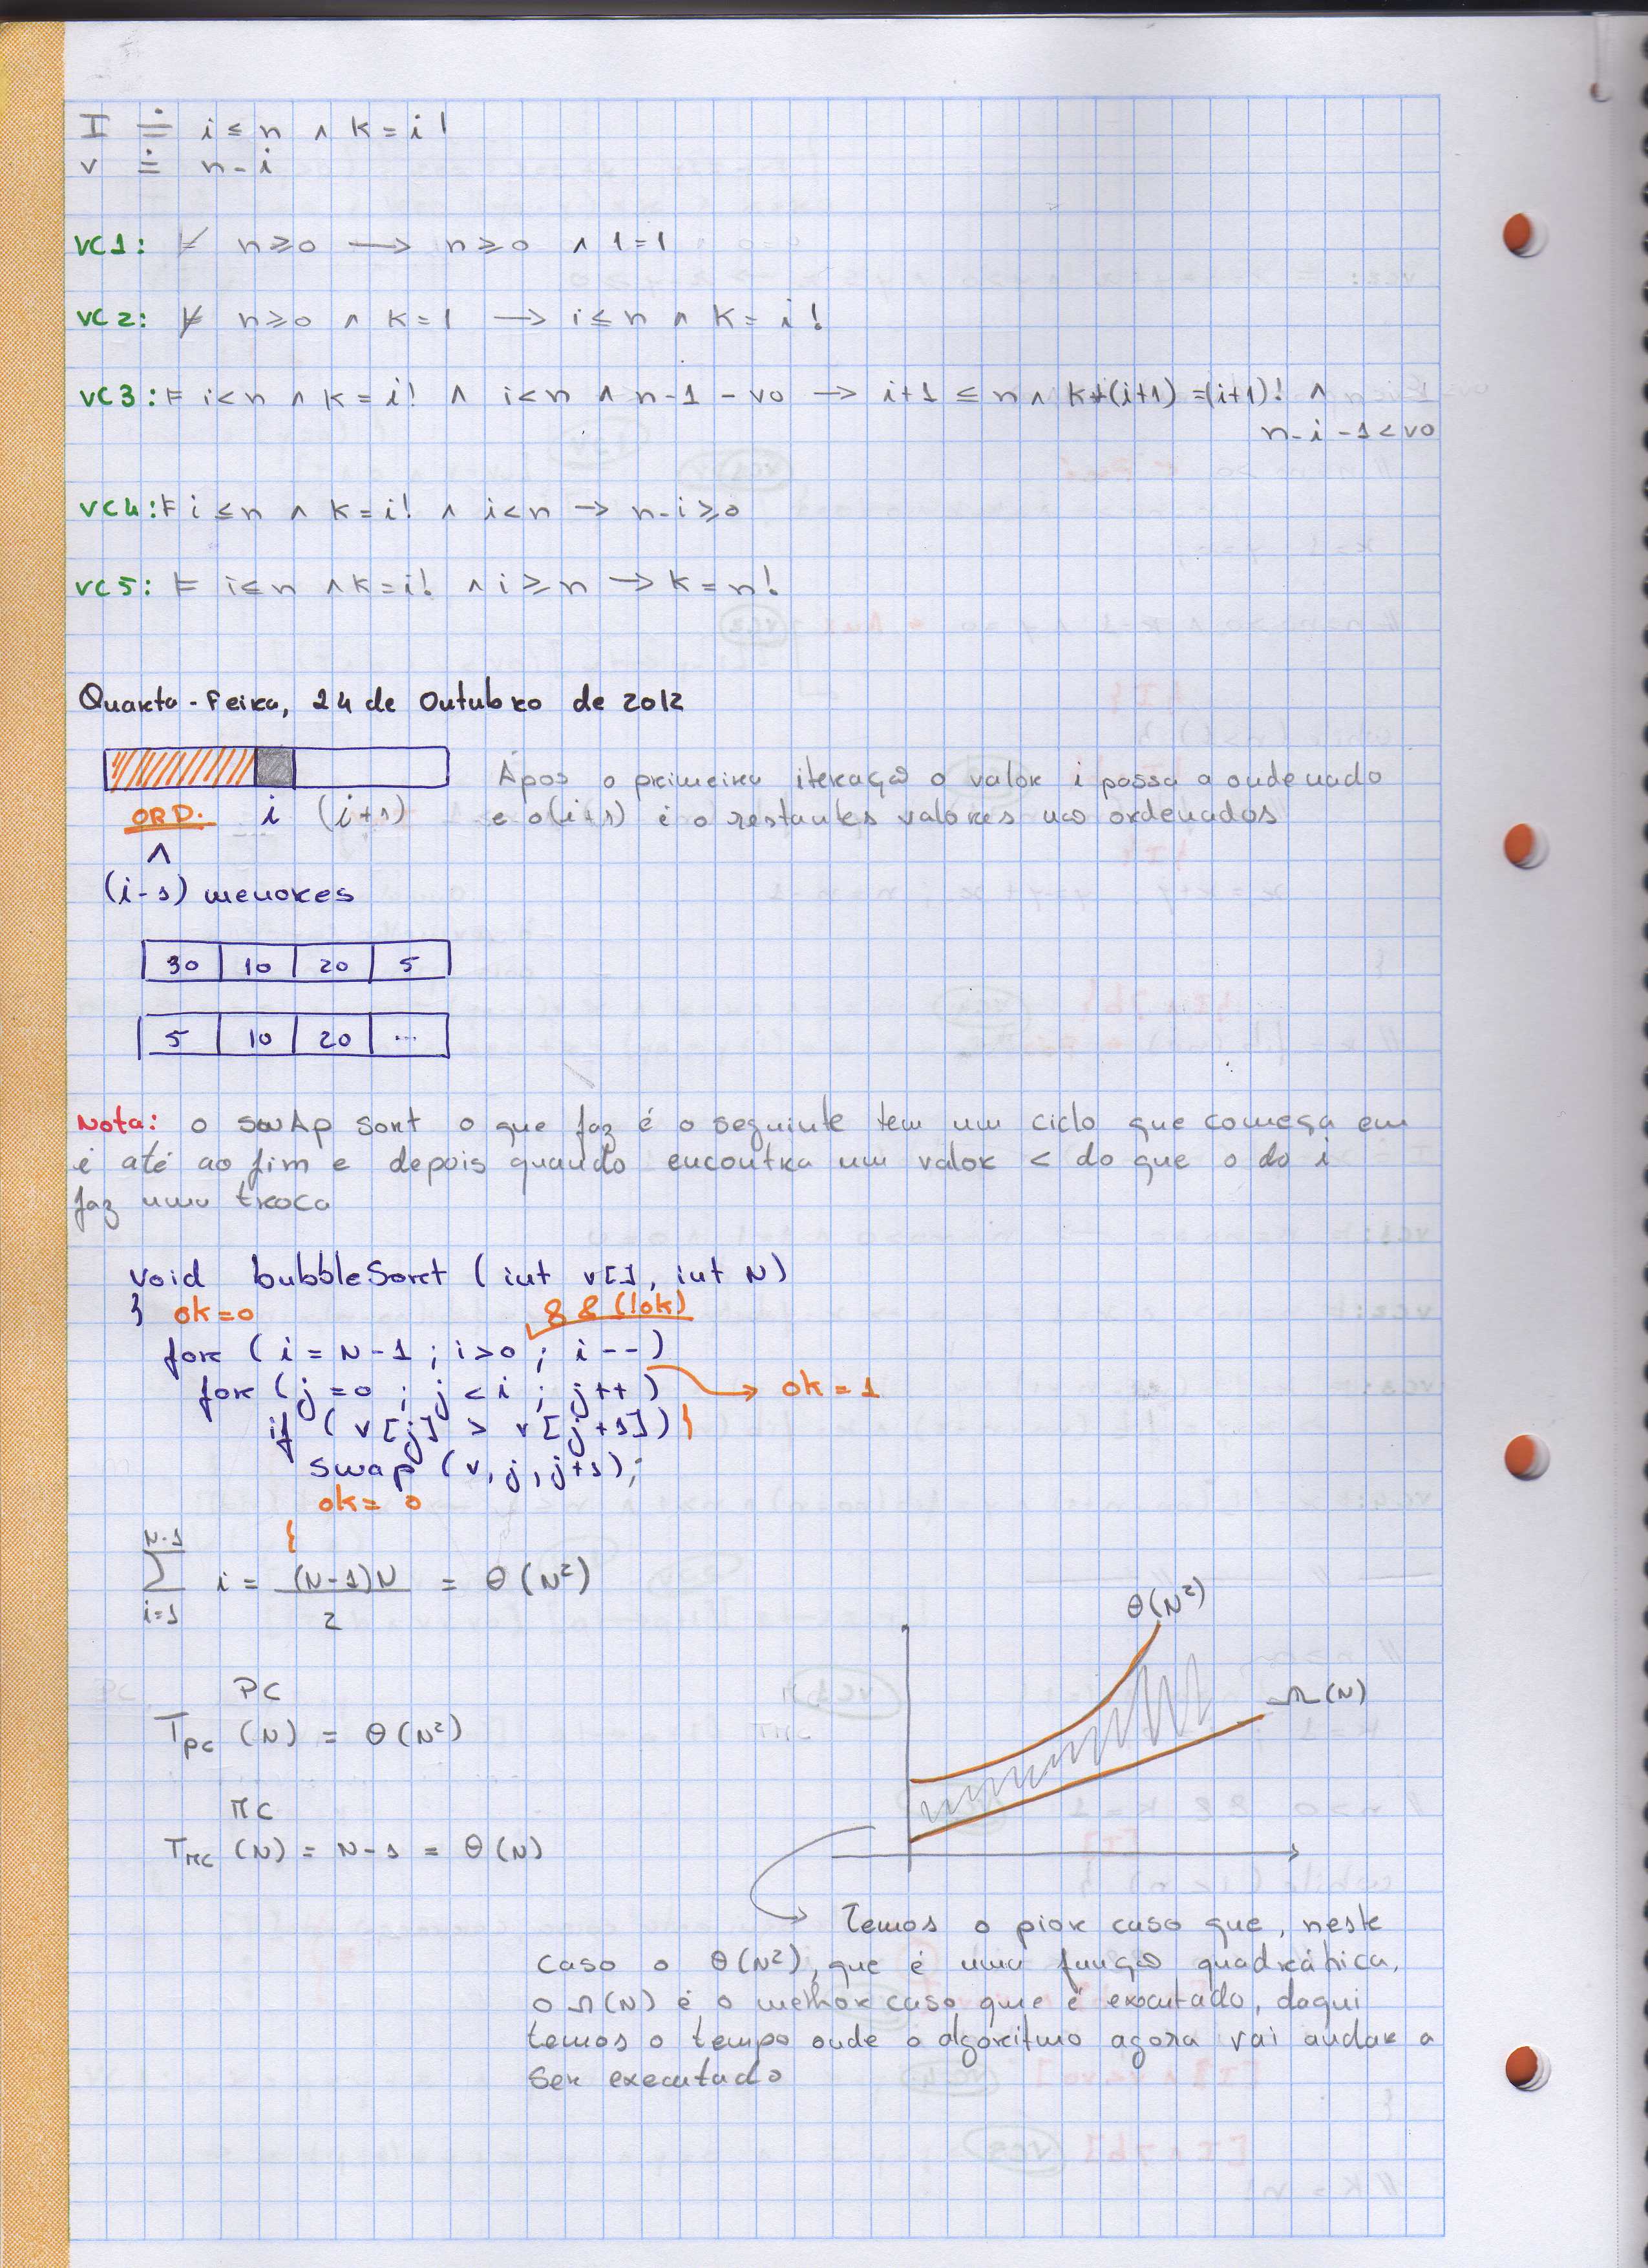 I ≐ i ≤ n ∧ k = i!
v ≐ n - i
VC1: ⊭ n ≥ 0 → n ≥ 0 ∧ 1 = 1
VC2: ⊭ n ≥ 0 ∧ k = 1 → i ≤ n ∧ k = i!
VC3: ⊨ i < n ∧ k = i! ∧ i < n ∧ n - 1 - v0 → i+1 ≤ n ∧ k*(i+1) = (i+1)! ∧
n - i - 1 < v0
VC4: ⊨ i ≤ n ∧ k = i! ∧ i < n → n - i ≥ 0
VC5: ⊨ i ≤ n ∧ k = i! ∧ i ≥ n → k = n!
Quarta-Feira, 24 de Outubro de 2012
Após a primeira iteração o valor i passa a ordenado
ORD. i (i+1)
e o (i+1) é o restantes valores não ordenados
∧
(i-1) menores
30 10 20 5
5 10 20 ...
Nota: o swAp sort o que faz é o seguinte tem um ciclo que começa em
i até ao fim e depois quando encontra um valor < do que o do i
faz uma troca
void bubbleSort (int v[], int N)
{ ok=0
&& (!ok)
for (i = N-1 ; i>0 ; i--)
for (j=0 ; j < i ; j++) → ok = 1
if (v[j] > v[j+1]) {
swap (v, j, j+1);
ok = 0
}
∑ i=1 N-1 i = (N-1)N / 2 = Θ(N²)
Θ(N²)
Ω(N)
PC
T PC (N) = Θ(N²)
MC
T MC (N) = N-1 = Θ(N)
Temos o pior caso que, neste
caso o Θ(N²), que é uma função quadrática,
o Ω(N) é o melhor caso que é executado, daqui
temos o tempo onde o algoritmo agora vai andar a
ser executado